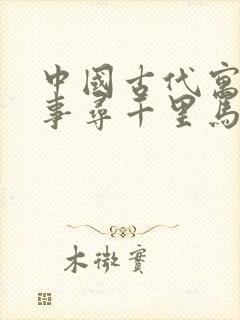 中國古代寓
事尋千里馬
木微實